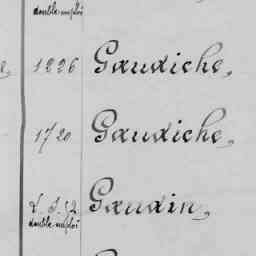 double-emploi
1226 Gaudiche,
1720 Gaudiche,
Gaudin,
double-emploi